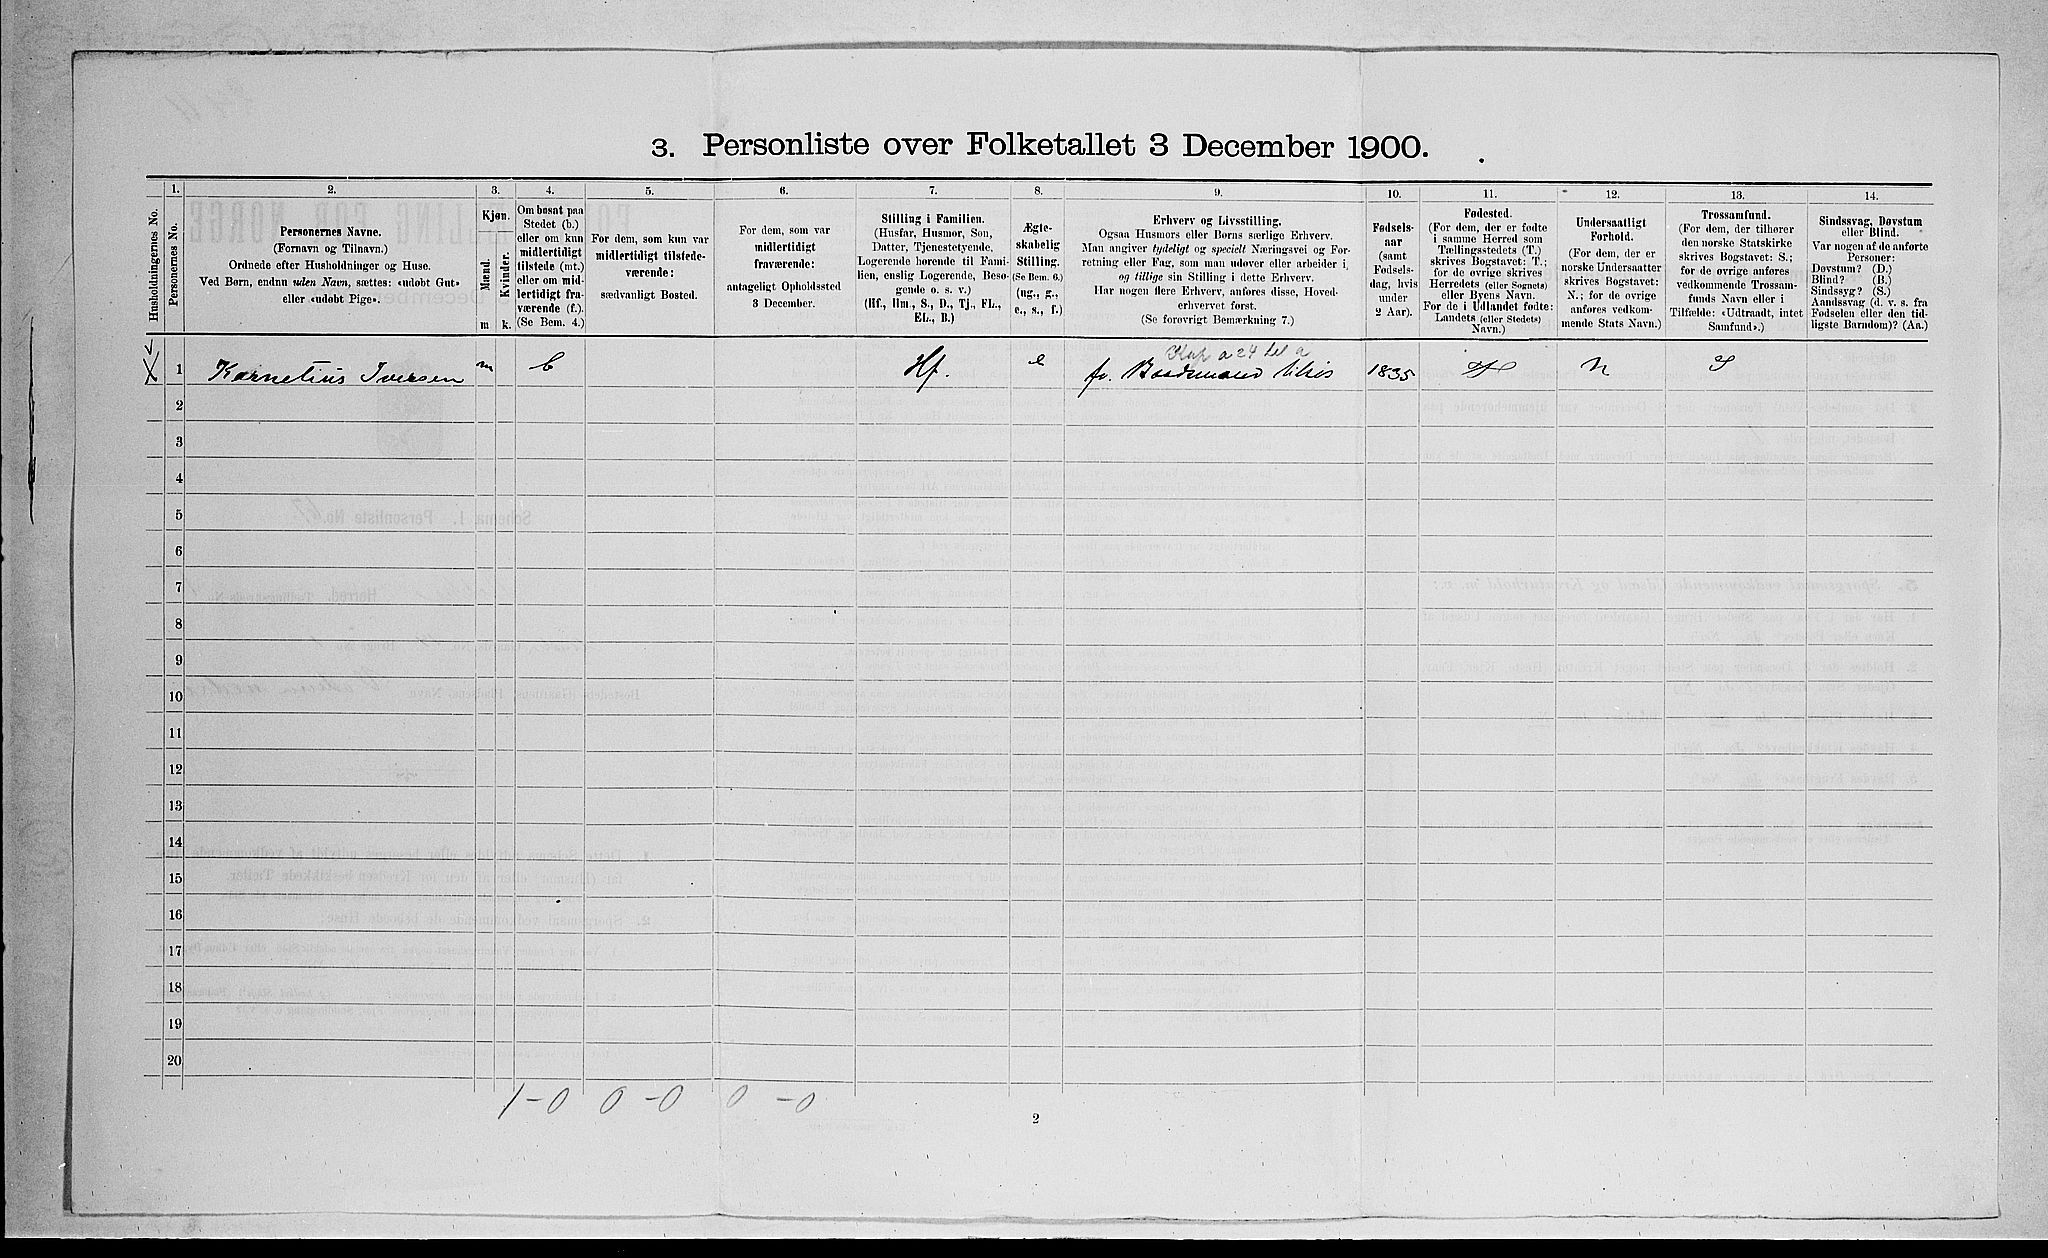 3. Personliste over Folketallet 3 December 1900.
Husholdningernes No.
1.
Personernes No.
2.
Personernes Navne.
(Fornavn og Tilnavn.)
Ordnede efter Husholdninger og Huse.
Ved Børn, endnu uden Navn, sættes: «udøbt Gut»
eller «udøbt Pige».
3.
Kjøn.
Mænd.
Kvinder.
m
k.
4.
Om bosat paa
Stedet (b.)
eller om kun
midlertidigt
tilstede (mt.)
eller om mid-
lertidigt fra-
værende (f.).
(Se Bem. 4.)
5.
For dem, som kun var
midlertidigt tilstede-
værende:
sædvanligt Bosted.
6.
For dem, som var
midlertidigt
fraværende:
antageligt Opholdssted
3 December.
7.
Stilling i Familien.
(Husfar, Husmor, Søn,
Datter, Tjenestetyende,
Logerende hørende til Fami-
lien, enslig Logerende, Besø-
gende o. s. v.)
(Hf., Hm., S., D., Tj., FL.,
EL., B.)
8.
Ægte-
skabelig
Stilling.
(Se Bem. 6.)
(ug., g.,
e., s., f.)
9.
Erhverv og Livsstilling.
Ogsaa Husmors eller Børns særlige Erhverv.
Man angiver tydeligt og specielt Næringsvei og For-
retning eller Fag, som man udøver eller arbeider i,
og tillige sin Stilling i dette Erhverv.
Har nogen flere Erhverv, anføres disse, Hoved-
erhvervet først.
(Se forøvrigt Bemærkning 7.)
10.
Fødsels-
aar
(samt
Fødsels-
dag, hvis
under
2 Aar).
11.
Fødested.
(For dem, der er fødte
i samme Herred som
Tællingsstedets (T.)
skrives Bogstavet: T.;
for de øvrige skrives
Herredets (eller Sognets)
eller Byens Navn.
For de i Udlandet fødte:
Landets (eller Stedets)
Navn.)
12.
Undersaatligt
Forhold.
(For dem, der er
norske Undersaatter
skrives Bogstavet:
N.; for de øvrige
anføres vedkom-
mende Stats Navn.)
13.
Trossamfund.
(For dem, der tilhører
den norske Statskirke
skrives Bogstavet: S.;
for de øvrige anføres
vedkommende Trossam-
funds Navn eller i
Tilfælde: «Udtraadt, intet
Samfund».)
14.
Sindssvag, Døvstum
eller Blind.
Var nogen af de anførte
Personer:
Døvstum? (D.)
Blind? (B.)
Sindssyg? (S.)
Aandssvag (d. v. s. fra
Fødselen eller den tid-
ligste Barndom)? (Aa.)
1 Kornelius Iversen m b Hf. e fv. Baadsmand tilsjøs 1835 N S
2
3
4
5
6
7
8
9
10
11
12
13
14
15
16
17
18
19
20
1-0 0-0 0-0
2